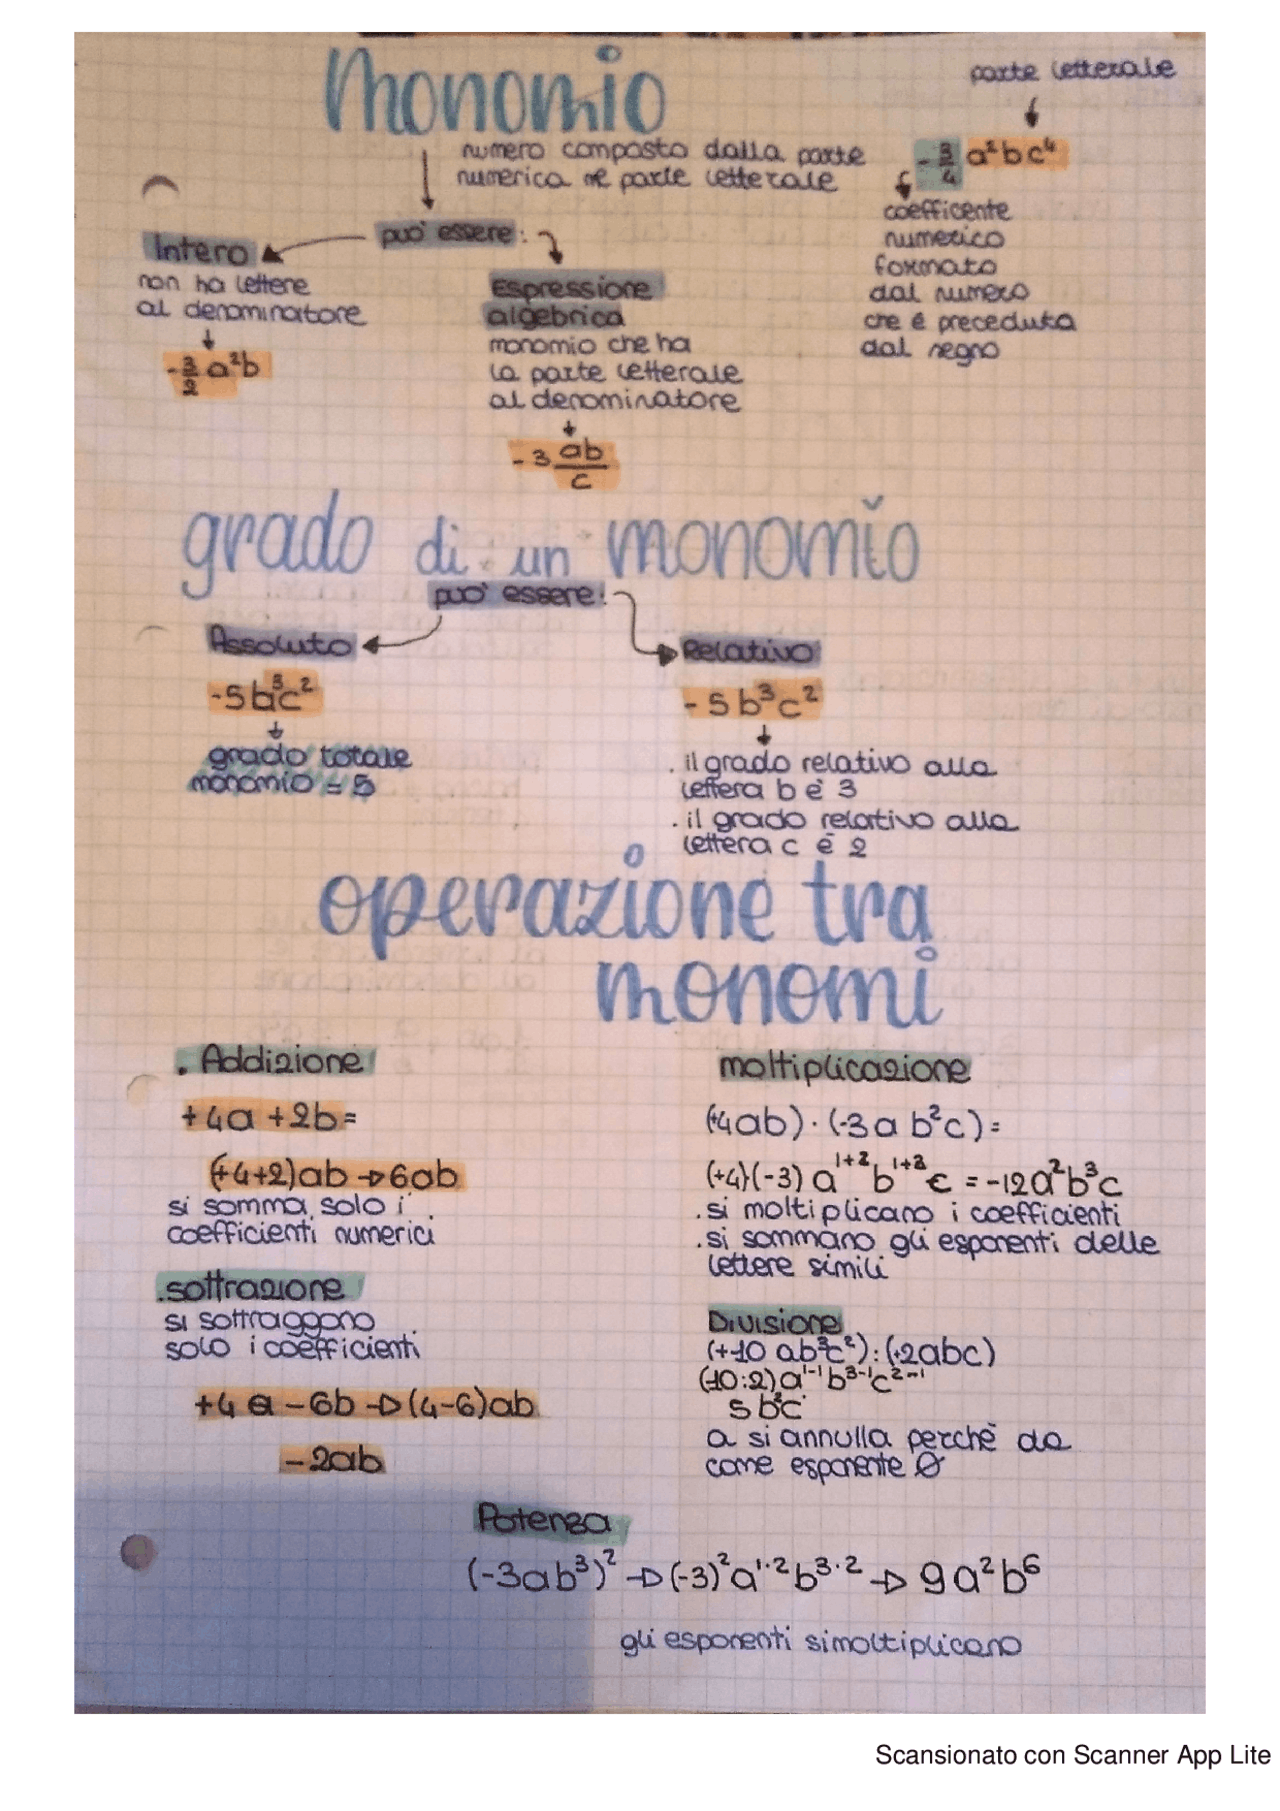 Monomio
numero composto dalla parte
numerica e parte letterale
parte letterale
-3/4 a²bc⁴
coefficente
numerico
formato
dal numero
che è preceduta
dal segno
può essere:
Intero
non ha lettere
al denominatore
-3/2 a²b
Espressione
algebrica
monomio che ha
la parte letterale
al denominatore
-3 ab/c
grado di un monomio
può essere:
Assoluto
-5b³c²
grado totale
monomio = 5
Relativo
-5b³c²
. il grado relativo alla
lettera b è 3
. il grado relativo alla
lettera c è 2
operazione tra
monomi
. Addizione
+4a +2b=
(+4+2)ab → 6ab
si somma solo i
coefficienti numerici
.sottrazione
si sottraggono
solo i coefficienti
+4a - 6b → (4-6)ab
- 2ab
moltiplicazione
(+4ab) · (-3a b²c) =
(+4)(-3) a¹⁺² b¹⁺² c = -12a²b³c
.si moltiplicano i coefficienti
.si sommano gli esponenti delle
lettere simili
Divisione
(+10 ab³c²) : (+2abc)
(10:2)a¹⁻¹b³⁻¹c²⁻¹
5b²c
a si annulla perchè da
come esponente 0
Potenza
(-3ab³)² → (-3)²a¹·²b³·² → 9a²b⁶
gli esponenti si moltiplicano
Scansionato con Scanner App Lite